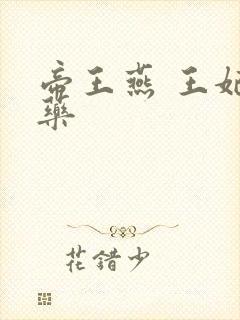 帝王燕 王妃
藥
花錯少